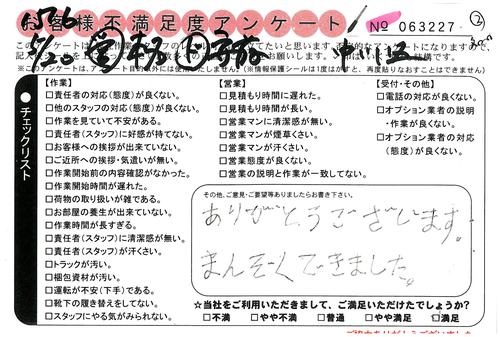 お客様不満足度アンケート
No 063227
②
【作業】
□責任者の対応(態度)が良くない。
□他のスタッフの対応(態度)が良くない。
□作業を見ていて不安がある。
□責任者(スタッフ)に好感が持てない。
□お客様への挨拶が出来ていない。
□ご近所への挨拶・気遣いが無い。
□作業開始前の内容確認がなかった。
□作業開始時間が遅れた。
□荷物の取り扱いが雑である。
□お部屋の養生が出来ていない。
□作業時間が長すぎる。
□責任者(スタッフ)に清潔感が無い。
□責任者(スタッフ)が汗くさい。
□トラックが汚い。
□梱包資材が汚い。
□運転が不安(下手)である。
□靴下の履き替えをしてない。
□スタッフにやる気がみられない。
チェックリスト
【営業】
□見積もり時間に遅れた。
□見積もり時間が長い。
□営業マンに清潔感が無い。
□営業マンが煙草くさい。
□営業マンが汗くさい。
□営業態度が良くない。
□営業の説明と作業が一致してない。
【受付・その他】
□電話の対応が良くない。
□オプション業者の説明
・作業が良くない。
□オプション業者の対応
(態度)が良くない。
その他、ご意見・ご要望等ありましたらお書き下さい。
ありがとうございます。
まんぞくできました。
☆当社をご利用いただきまして、ご満足いただけたでしょうか?
□不満 □やや不満 □普通 □やや満足 □満足